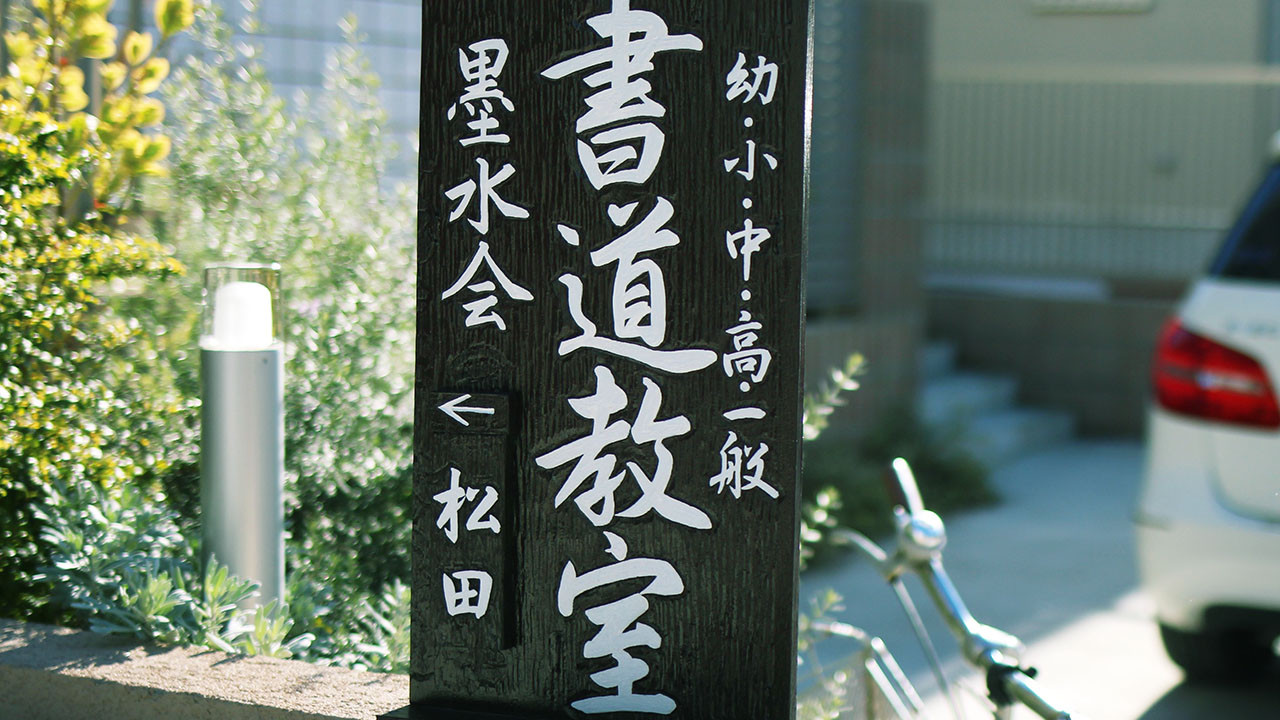 幼・小・中・高・一般
書道教室
墨水会
← 松田